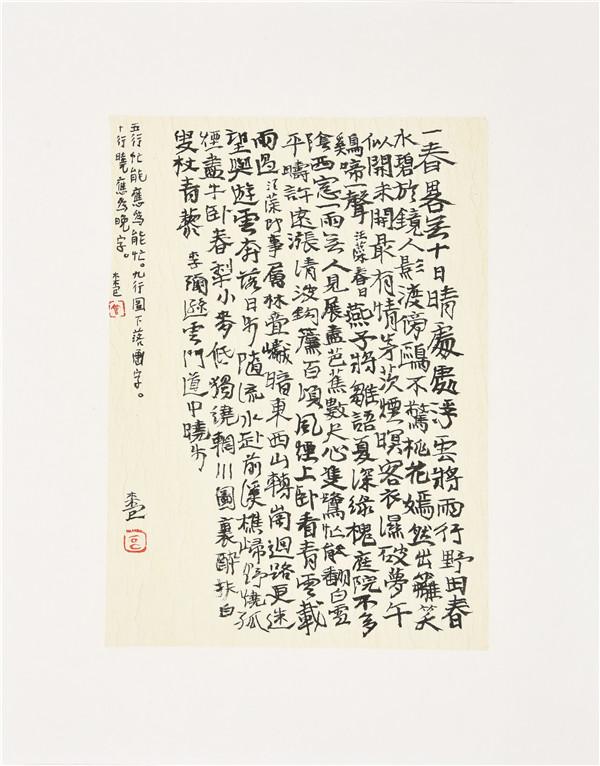 一春畧無十日晴處處浮雲將雨行野田春
水碧於鏡人影渡傍鷗不驚桃花嫣然出籬笑
似開未開最有情茅茨煙暝客衣濕破夢午
鷄啼一聲 汪藻春日 燕子將雛語夏深綠槐庭院不多
陰西窓一雨無人見展盡芭蕉數尺心隻鷺忙能翻白雪
平疇許遠漲清波鉤簾百頃風煙上卧看青雲載
雨過 汪藻即事 層林疊巘暗東西山轉崗迴路更迷
望與遊雲奔落日步隨流水赴前溪樵歸野燒孤
煙盡牛卧春犁小麥低獨繞輞川圖裏醉扶白
叟杖青藜 李彌遜雲門道中曉步
五行忙能應為能忙。九行圖下落畫字。
十行曉應為晚字。